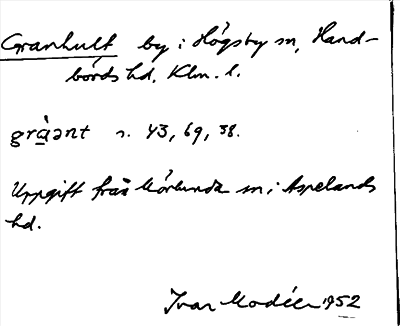 Granhult by i Högsby sn, Hand-
börds hd, Klm. l.
gràənt s. 43, 69, 38.
Uppgift från Mörlunda sn i Aspelands
hd.
Ivar Modéer 1952